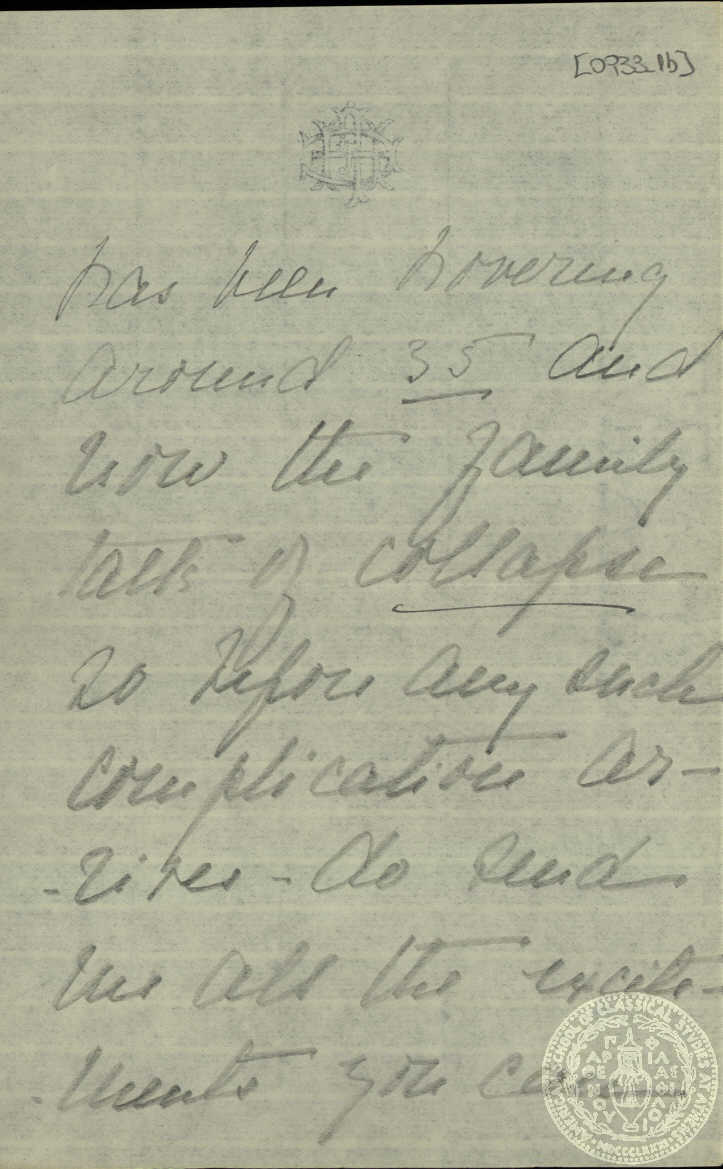 [0933_1b]
has been hovering
around 35 and
now the family
talk of collapse
so before any such
complication ar-
-rives - do send
me all the excite-
-ments you can
AMERICAN SCHOOL OF CLASSICAL STUDIES AT ATHENS
ΠΑΡΘΕΝΟΥ ΦΙΛΑΣ ΦΙΛΙΟΙ
MDCCCLXXXI